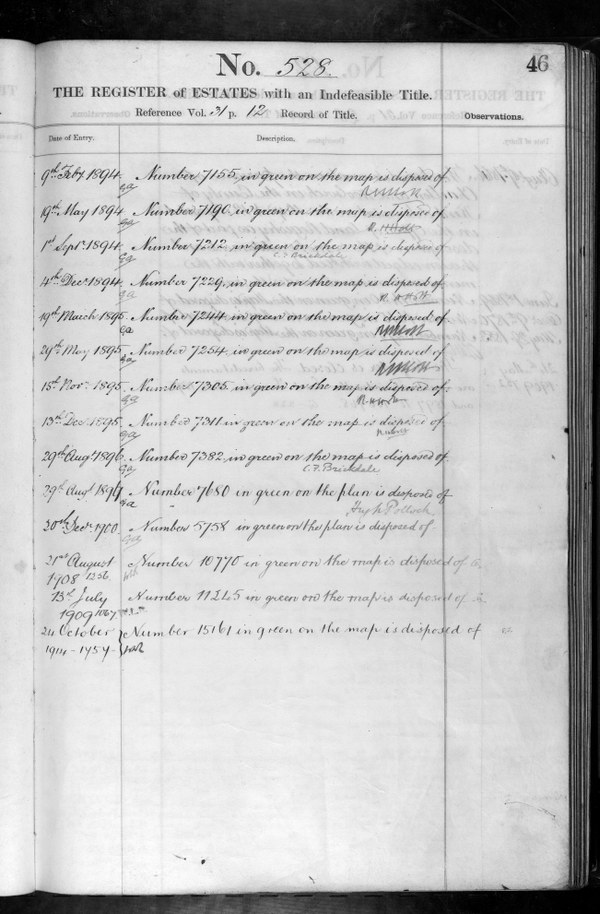 No. 528.
46
THE REGISTER of ESTATES with an Indefeasible Title.
Reference Vol. 31 p. 12 Record of Title.
Observations.
Date of Entry.
Description.
9th Feby 1894. Number 7155, in green on the map is disposed of
19th May 1894 Number 7190, in green on the map is disposed of
R. H. Holt
1st Septr 1894. Number 7212, in green on the map is disposed of
C. F. Brickdale
4th Decr 1894. Number 7229, in green on the map is disposed of
R. H. Holt
19th March 1895. Number 7244 in green on the map is disposed of
R H Holt
29th May 1895. Number 7254 in green on the map is disposed of
R H Holt
15th Novr 1895. Number 7305, in green on the map is disposed of.
R. H. Holt
13th Decr 1895. Number 7311 in green on the map is disposed of.
29th Augt 1896. Number 7382 in green on the map is disposed of
C. F. Brickdale
29th Augt 1899 Number 7680 in green on the plan is disposed of
Hugh Pollock
20th Decr 1900. Number 5758 in green on the plan is disposed of
21st August Number 10770 in green on the map is disposed of
1908 1236
13th July Number 11245 in green on the map is disposed of
1909 1067
24 October Number 15161 in green on the map is disposed of
1914 - 1754 -